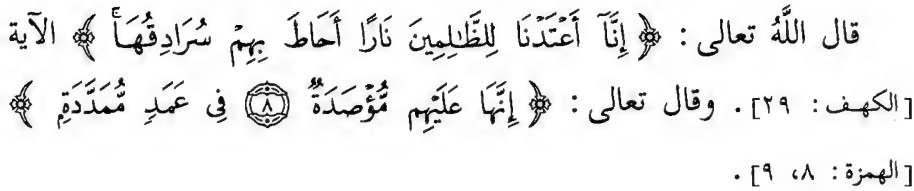 قال اللَّهُ تعالى : ﴿ إِنَّآ أَعْتَدْنَا لِلظَّٰلِمِينَ نَارًا أَحَاطَ بِهِمْ سُرَادِقُهَاۚ ﴾ الآية
[الكهـف : ٢٩] . وقال تعالى : ﴿ إِنَّهَا عَلَيْهِم مُّؤْصَدَةٌ ۝٨ فِى عَمَدٍ مُّمَدَّدَةٍۭ ﴾
[الهمزة : ٨، ٩] .